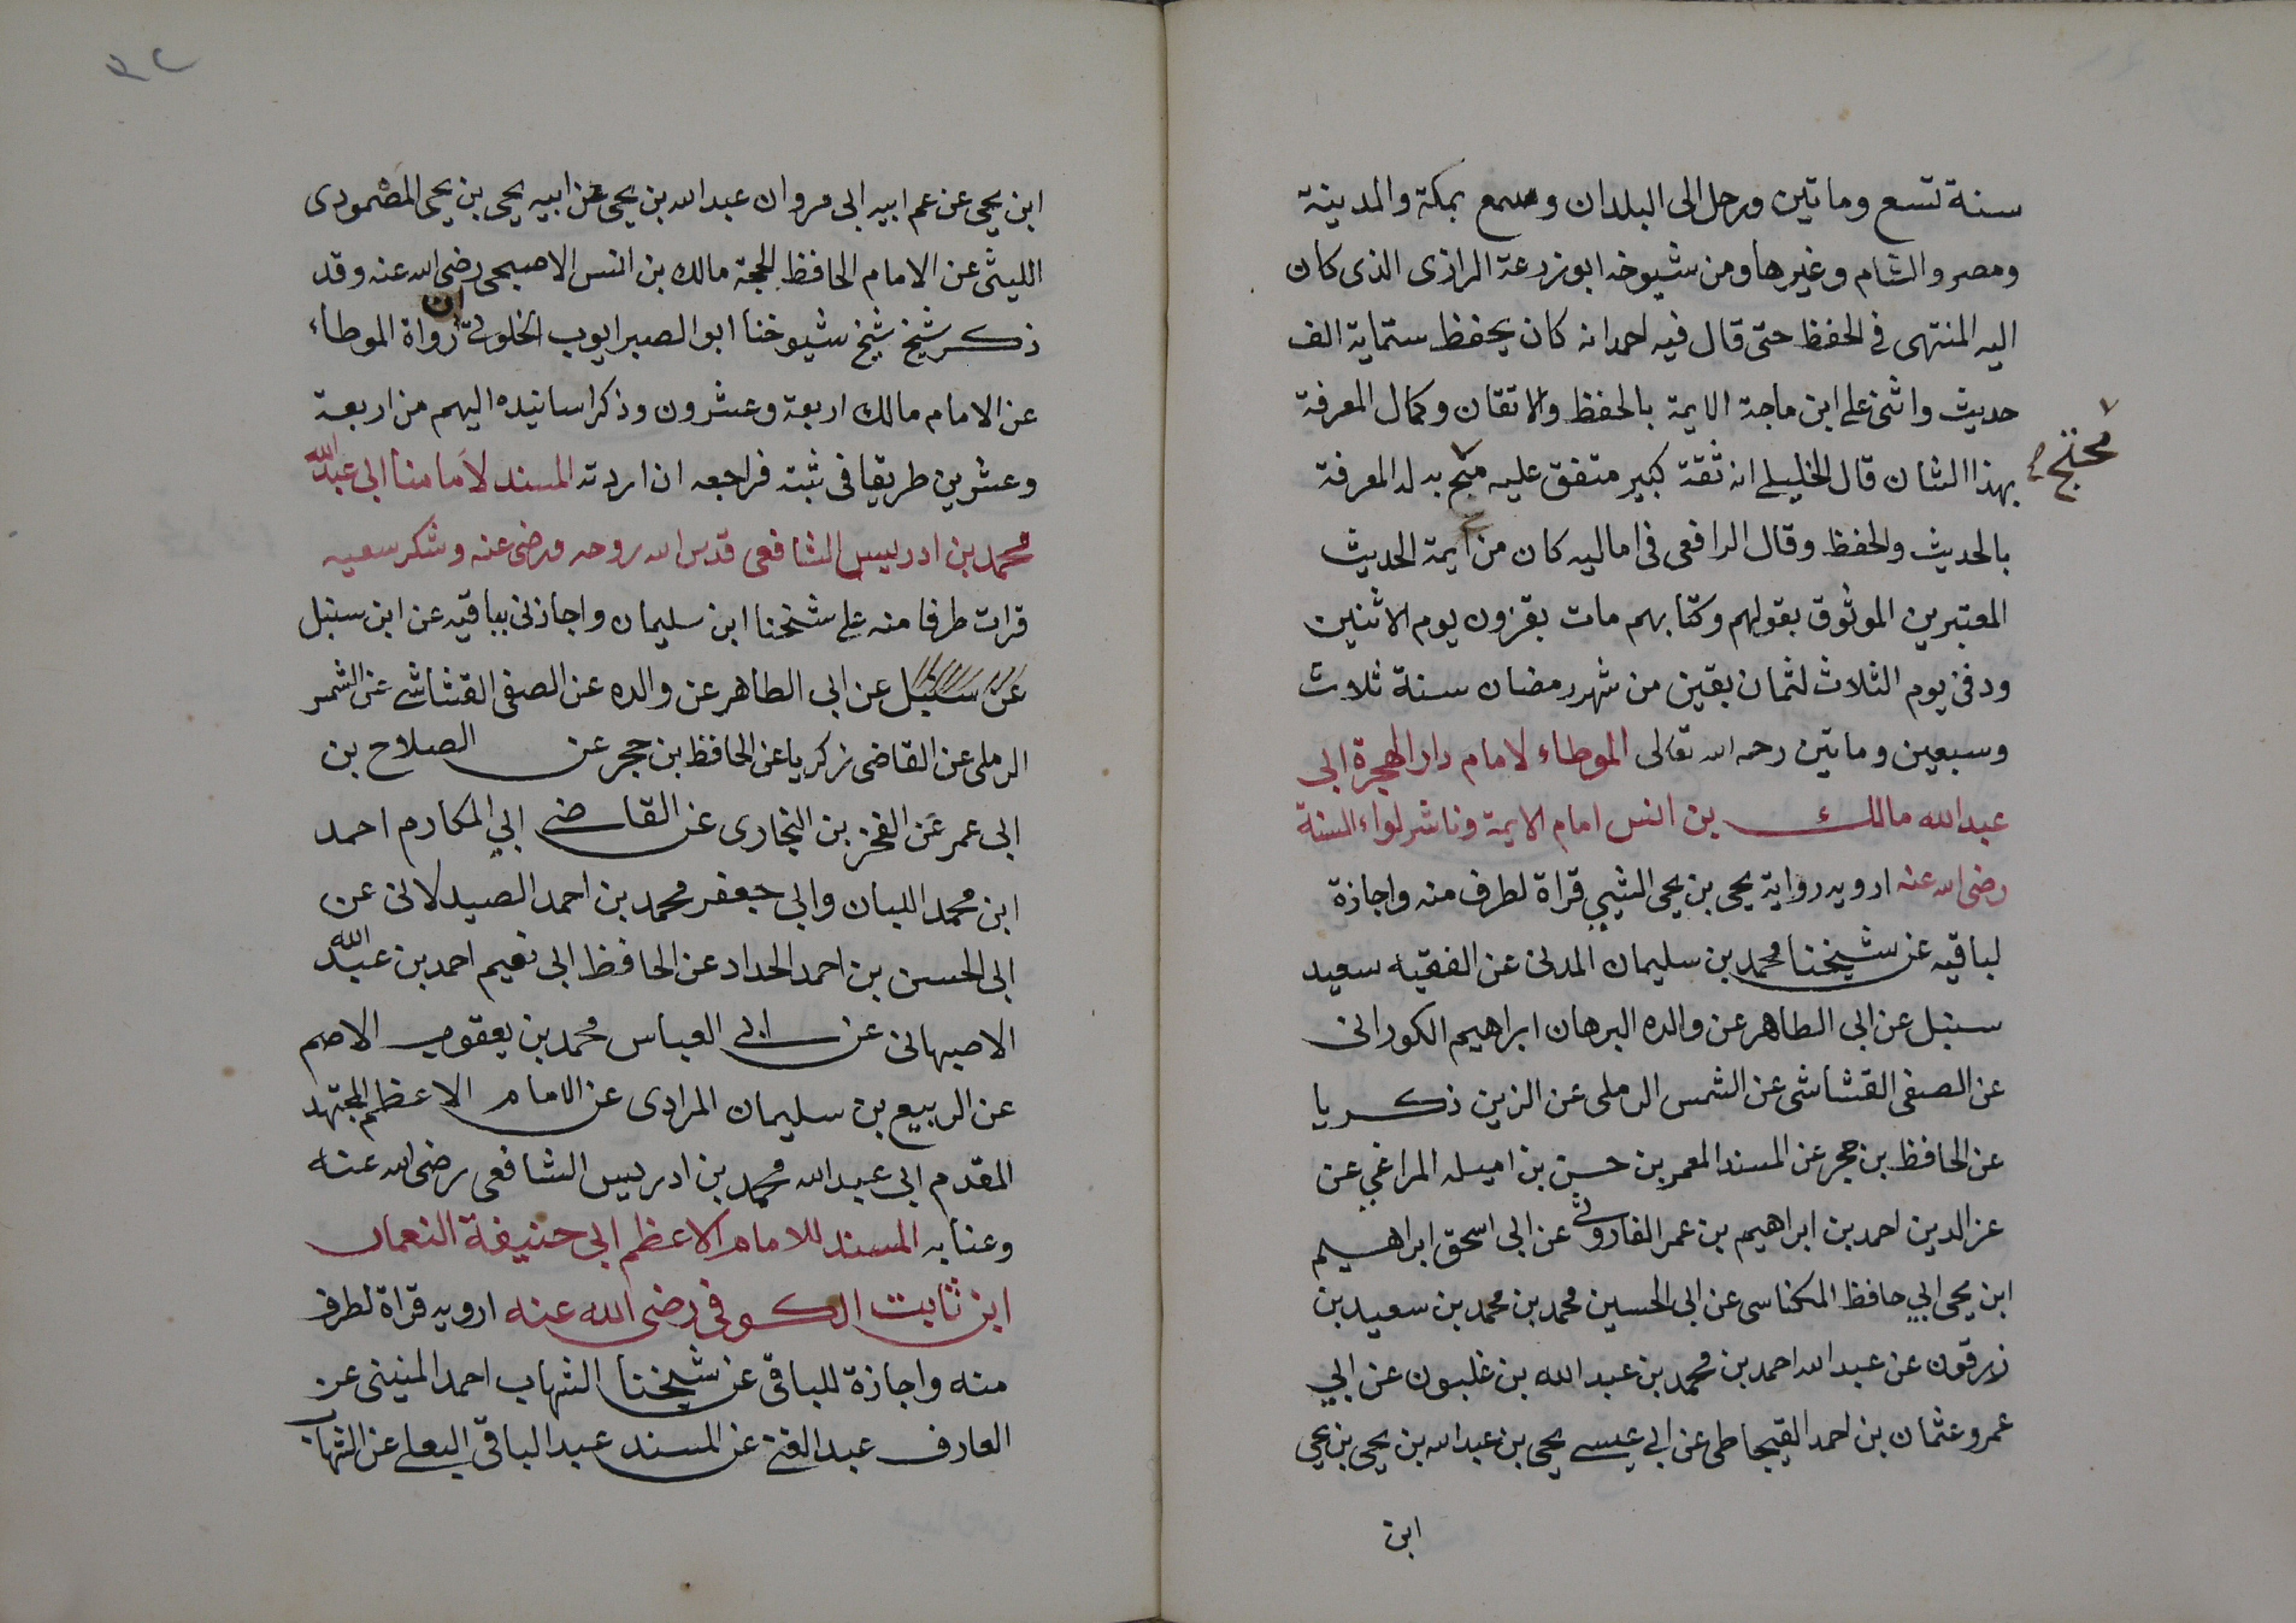 سنة تسع وماتين ورحل الى البلدان وسمع بمكة والمدينة
ومصر والشام وغيرها ومن شيوخه ابو زرعة الرازى الذى كان
اليه المنتهى فى الحفظ حتى قال فيه احمد انه كان يحفظ ستماية الف
حديث واثنى على ابن ماجة الايمة بالحفظ والاتقان وكمال المعرفة
بهذا الشان قال الخليلى انه ثقة كبير متفق عليه محتج به له المعرفة
محتج
بالحديث والحفظ وقال الرافعى فى اماليه كان من ايمة الحديث
المعتبرين الموثوق بقولهم وكتابهم مات بقزون يوم الاثنين
ودفن يوم الثلاث لثمان بقين من شهر رمضان سنة ثلاث
وسبعين وماتين رحمه الله تعالى الموطاء لامام دار الهجرة ابى
عبد الله مالك بن انس امام الايمة وناشر لواء السنة
رضى الله عنه ارويه رواية يحى بن يحى الليثى قراة لطرف منه واجازة
لباقيه عن شيخنا محمد بن سليمان المدنى عن الفقيه سعيد
سنبل عن ابى الطاهر عن والده البرهان ابراهيم الكورانى
عن الصفى القشاشى عن الشمس الرملى عن الزين زكريا
عن الحافظ بن حجر عن المسند المعمر بن حسن بن اميله المراغي عن
عز الدين احمد بن ابراهيم بن عمر الفاروثى عن ابى اسحق ابراهيم
ابن يحى ابي حافظ المكناسى عن ابى الحسين محمد بن محمد بن سعيد بن
زرقون عن عبد الله احمد بن محمد بن عبد الله بن غلبون عن ابي
عمرو عثمان بن احمد القيجاطى عن ابى عيسى يحى بن عبد الله بن يحى بن يحى
ابن
ابن يحى عن عم ابيه ابى مروان عبد الله بن يحى عن ابيه يحى بن يحى المصمودى
الليثى عن الامام الحافظ الحجة مالك بن انس الاصبحى رضى الله عنه وقد
ذكر شيخ شيخ شيوخنا ابو الصبر ايوب الخلوتى ان رواة الموطاء
عن الامام مالك اربعة وعشرون وذكر اسانيده اليهم من اربعة
وعشرين طريقا فى ثبته فراجعه ان اردته المسند لامامنا ابى عبد الله
محمد بن ادريس الشافعى قدس الله روحه ورضى عنه وشكر سعيه
قرات طرفا منه على شيخنا ابن سليمان واجازنى بباقيه عن ابن سنبل
عن سنبل عن ابى الطاهر عن والده عن الصفى القشاشى عن الشمس
الرملى عن القاضى زكريا عن الحافظ بن حجر عن الصلاح بن
ابى عمر عن الفخر بن البخارى عن القاضى ابي المكارم احمد
ابن محمد اللبان وابى جعفر محمد بن احمد الصيدلانى عن
ابى الحسن بن احمد الحداد عن الحافظ ابى نعيم احمد بن عبد الله
الاصبهانى عن ابى العباس محمد بن يعقوب الاصم
عن الربيع بن سليمان المرادى عن الامام الاعظم المجتهد
المقدم ابى عبد الله محمد بن ادريس الشافعى رضى الله عنه
وعنا به المسند للامام الاعظم ابى حنيفة النعمان
ابن ثابت الكوفى رضى الله عنه ارويه قراة لطرف
منه واجازة للباقى عن شيخنا الشهاب احمد المنينى عن
العارف عبد الغنى عن المسند عبد الباقى البعلى عن الشهاب